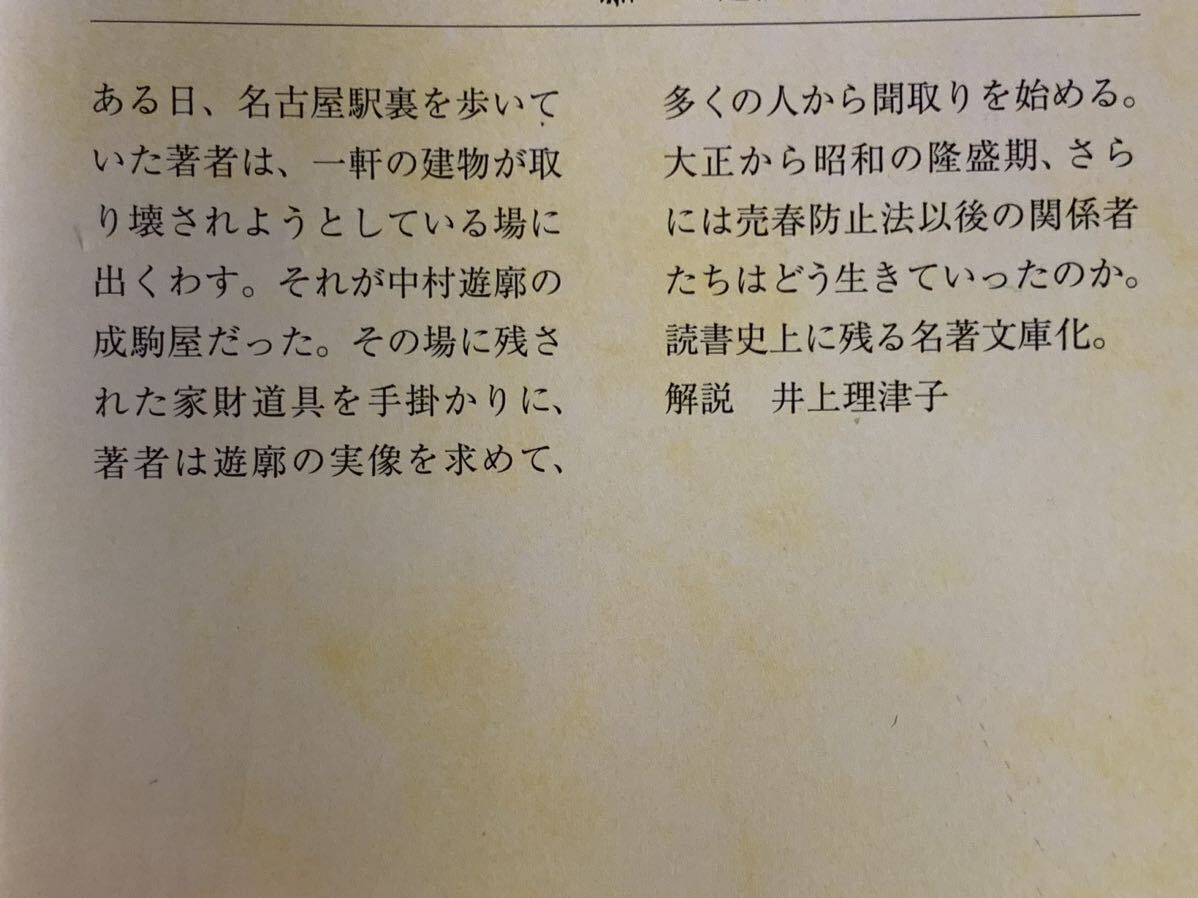 ある日、名古屋駅裏を歩いて
いた著者は、一軒の建物が取
り壊されようとしている場に
出くわす。それが中村遊廓の
成駒屋だった。その場に残さ
れた家財道具を手掛かりに、
著者は遊廓の実像を求めて、
多くの人から聞取りを始める。
大正から昭和の隆盛期、さら
には売春防止法以後の関係者
たちはどう生きていったのか。
読書史上に残る名著文庫化。
解説　井上理津子